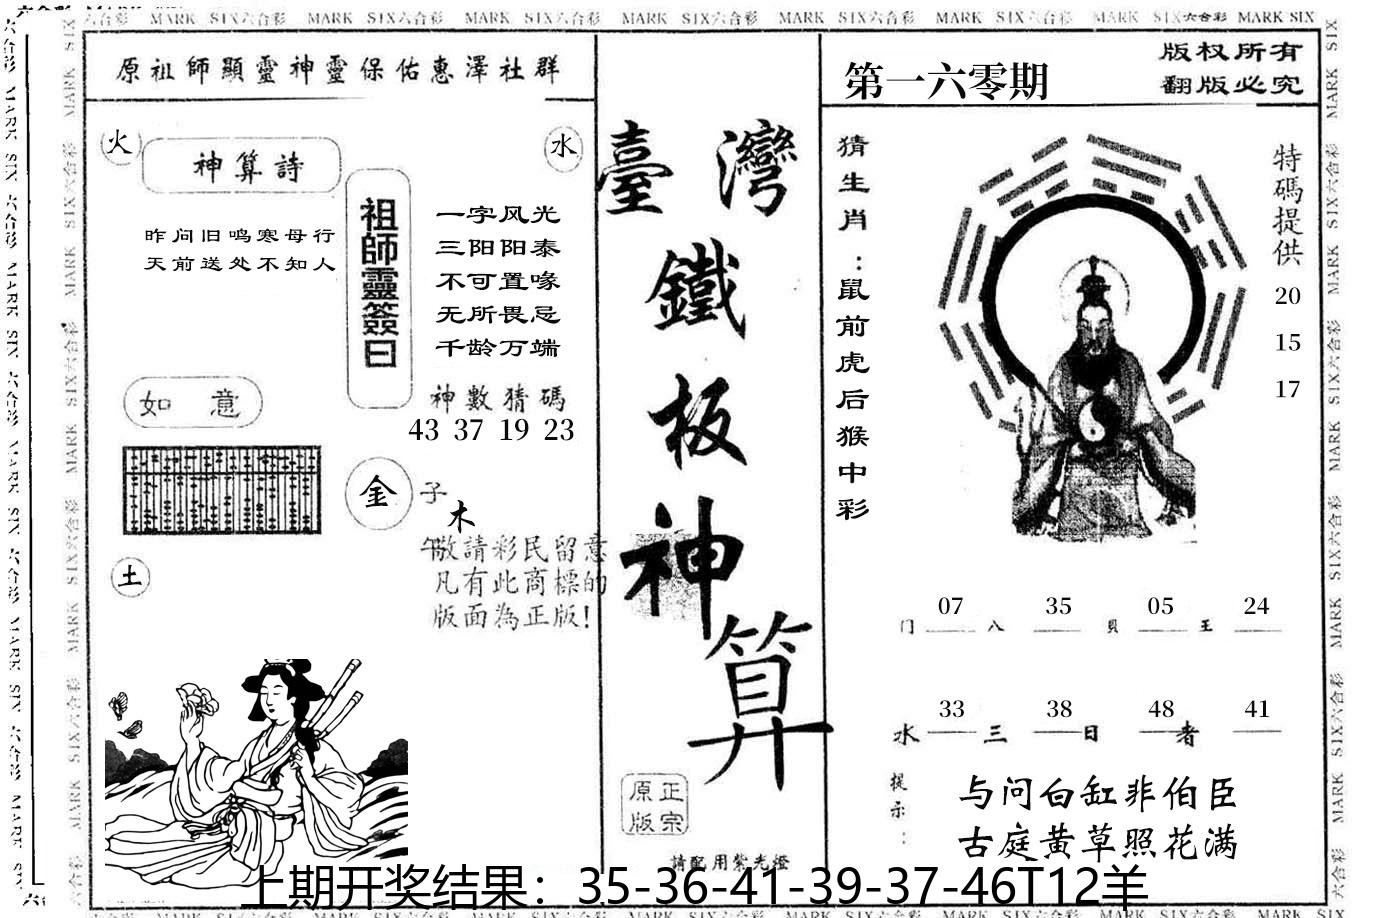 MARK SIX六合彩 MARK SIX六合彩 MARK SIX六合彩 MARK SIX六合彩 MARK SIX六合彩 MARK SIX六合彩 MARK SIX六合彩 MARK SIX
原祖師顯靈神靈保佑惠澤社群
火
水
神算詩
昨问旧鸣寒母行
天前送处不知人
祖師靈簽曰
一字风光
三阳阳泰
不可置喙
无所畏忌
千龄万端
神數猜碼
43 37 19 23
如意
金
子
木
午
敬請彩民留意
凡有此商標的
版面為正版!
土
臺灣
鐵
板
神
算
原正
版宗
請配用紫光燈
第一六零期
版权所有
翻版必究
猜生肖:鼠前虎后猴中彩
特碼提供
20
15
17
07 35 05 24
门 八 貝 王
33 38 48 41
水 三 日 者
提示:
与问白缸非伯臣
古庭黄草照花满
上期开奖结果：35-36-41-39-37-46T12羊